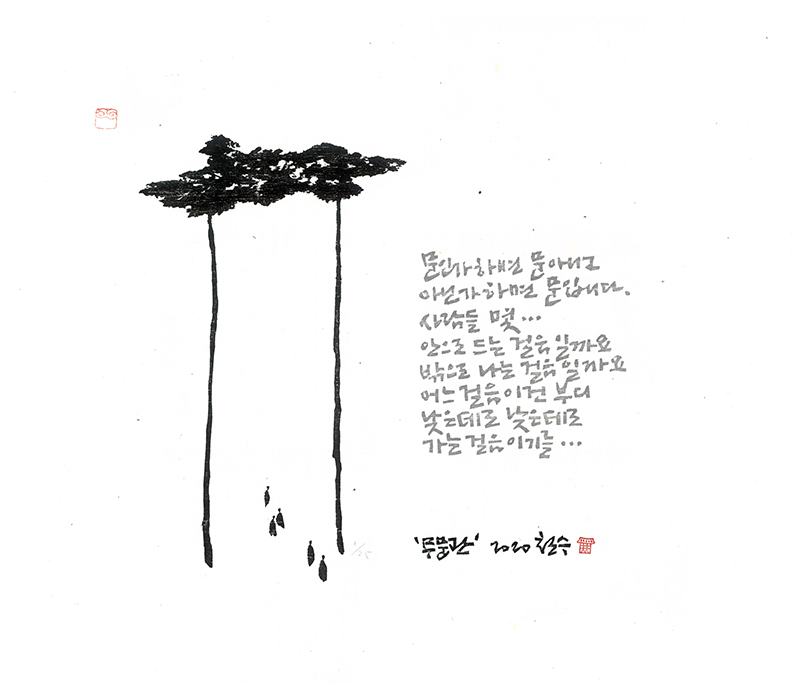 문인가하면 문아니고
아닌가하면 문입니다.
사람들 몇...
안으로 드는 걸음일까요
밖으로 나는 걸음일까요
어느걸음이건 부디
낮은데로 낮은데로
가는걸음이기를...
'무문관' 2020 철수